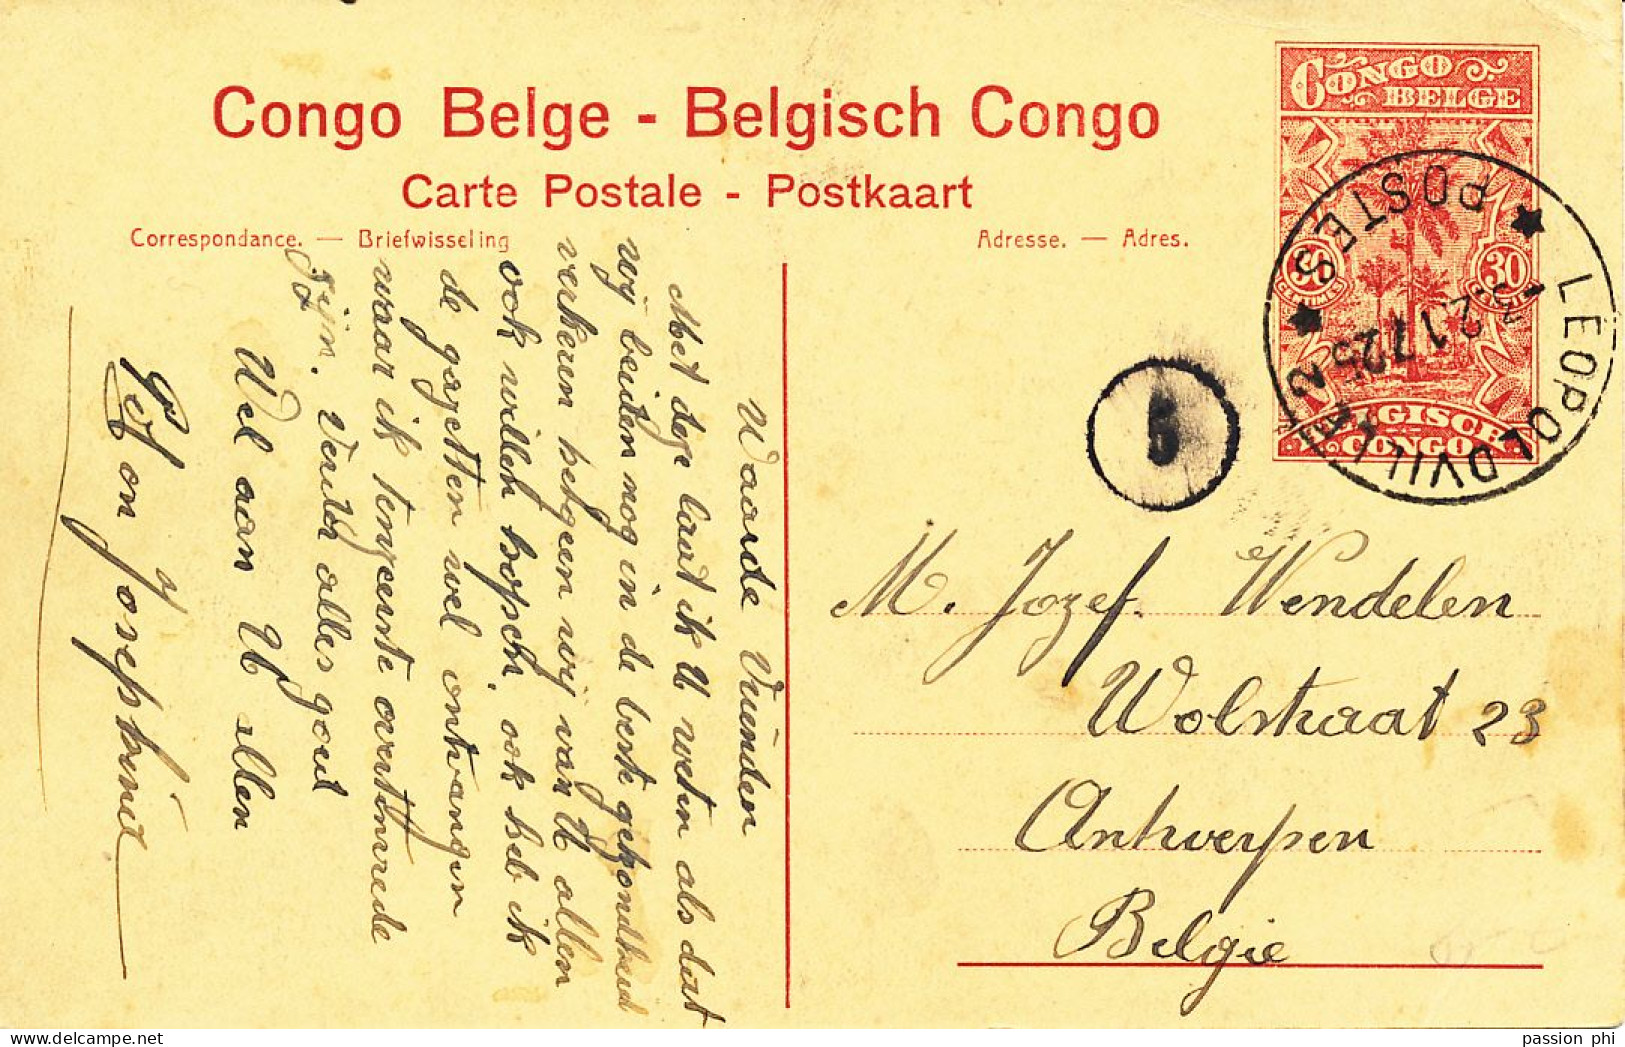 Congo Belge - Belgisch Congo
Carte Postale - Postkaart
Correspondance. — Briefwisseling
Adresse. — Adres.
CONGO
BELGE
30 30
CENTIMES
BELGISCH
CONGO
LEOPOLDVILLE 2
POSTES
21 7 25
6
M. Jozef Wendelen
Wolstraat 23
Antwerpen
Belgie
Waarde Vrienden
Met deze laat ik U weten als dat
wij beiden nog in de beste gezondheid
verkeeren hetgeen wij van U allen
ook willen hopen. ook heb ik
de gazetten wel ontvangen
waar ik ten zeerste over
zijn. alles goed
Wel aan U allen
Josephine
passion phi